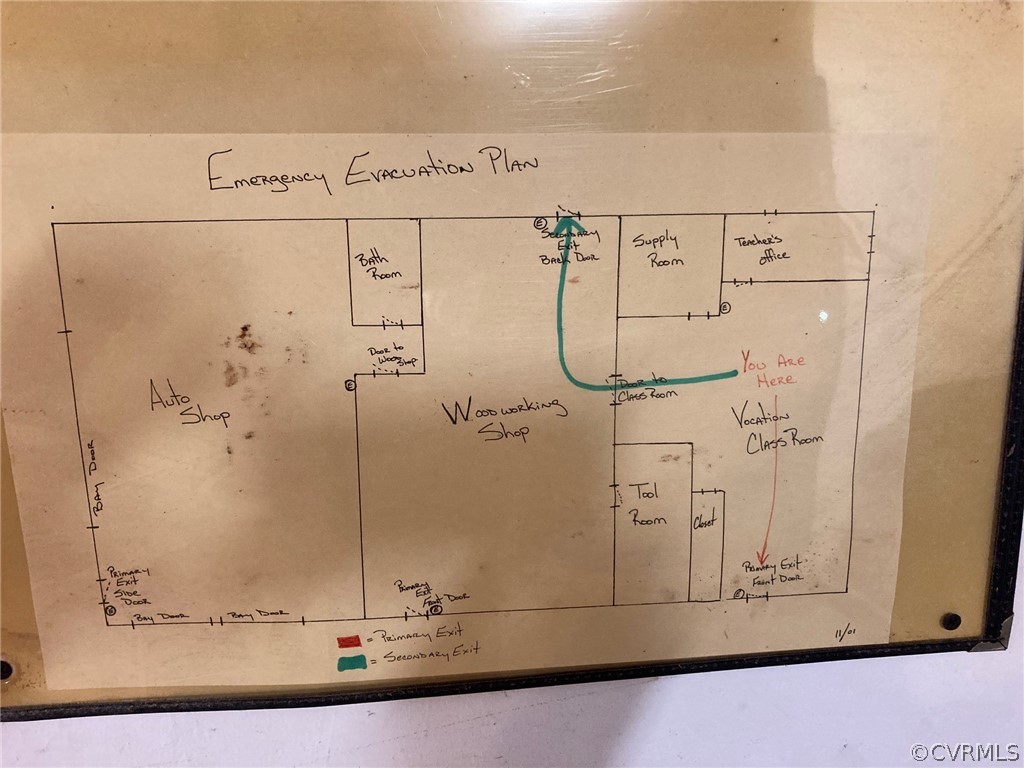 Emergency Evacuation Plan
E
Secondary
Exit
Back Door
Supply
Room
Teacher's
Office
Bath
Room
E
Door to
Wood Shop
E
Auto
Shop
Woodworking
Shop
Door to
Class Room
You Are
Here
Vocation
Class Room
Bay Door
Tool
Room
Closet
Primary
Exit
Side
Door
E
Bay Door
Bay Door
Primary
Exit
Front Door
E
Primary Exit
Front Door
E
= Primary Exit
= Secondary Exit
11/01
©CVRMLS